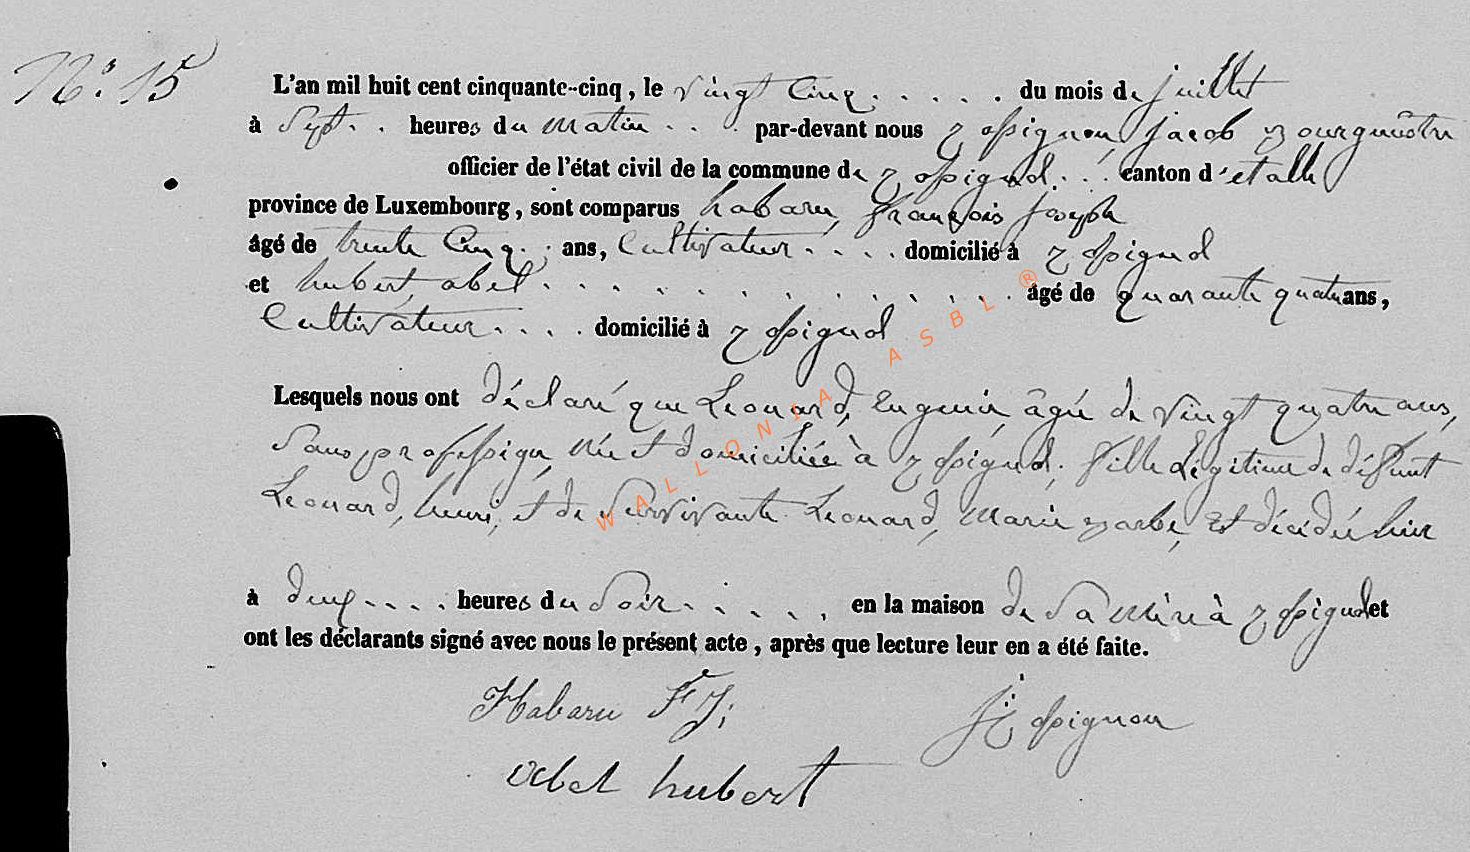 N° 15
L'an mil huit cent cinquante-cinq, le vingt cinq . . . . . du mois de juillet
à sept . . heures du matin . . . par-devant nous Rossignon Jacob Bourguëstre
officier de l'état civil de la commune de Rossignol . . . canton d'etalle
province de Luxembourg, sont comparus habaru, françois Joseph
âgé de trente Cinq . . ans, Cultivateur . . . . domicilié à Rossignol
et hubert, abel . . . . . . . . . . . . âgé de quarante quatre ans,
Cultivateur . . . . domicilié à Rossignol
Lesquels nous ont déclaré que Léonard, Eugenie, âgée de vingt quatre ans,
Sans profession, Née et domiciliée à Rossignol, fille légitime de défunt
Léonard, henri, et de Survivante Léonard, Marie Barbe, Est décédée hier
à deux . . . . heures du Soir . . . . . , en la maison de Sa Mère à Rossignol et
ont les déclarants signé avec nous le présent acte, après que lecture leur en a été faite.
Habaru F J;
J Rossignon
Abel hubert
WALLONIA ASBL ®